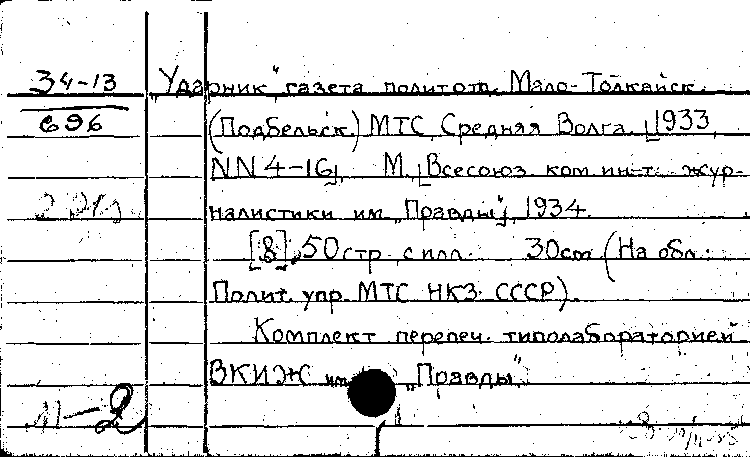 34-13
696
„Ударник“, газета политотд. Мало-Толкайск.
(Подбельск.) МТС, Средняя Волга. [1933,
NN 4-16]. М. [Всесоюз. ком. ин-т. жур-
налистики им. „Правды“], 1934.
[8], 50 стр. с илл. 30 cm (На обл.:
Полит. упр. МТС НКЗ СССР).
Комплект перепеч. типолабораторией
ВКИЖ им. „Правды“